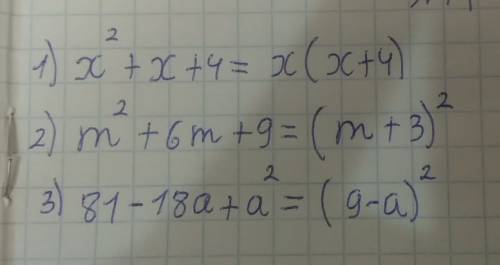 1) x² + x + 4 = x(x+4)
2) m² + 6m + 9 = (m+3)²
3) 81 - 18a + a² = (9-a)²